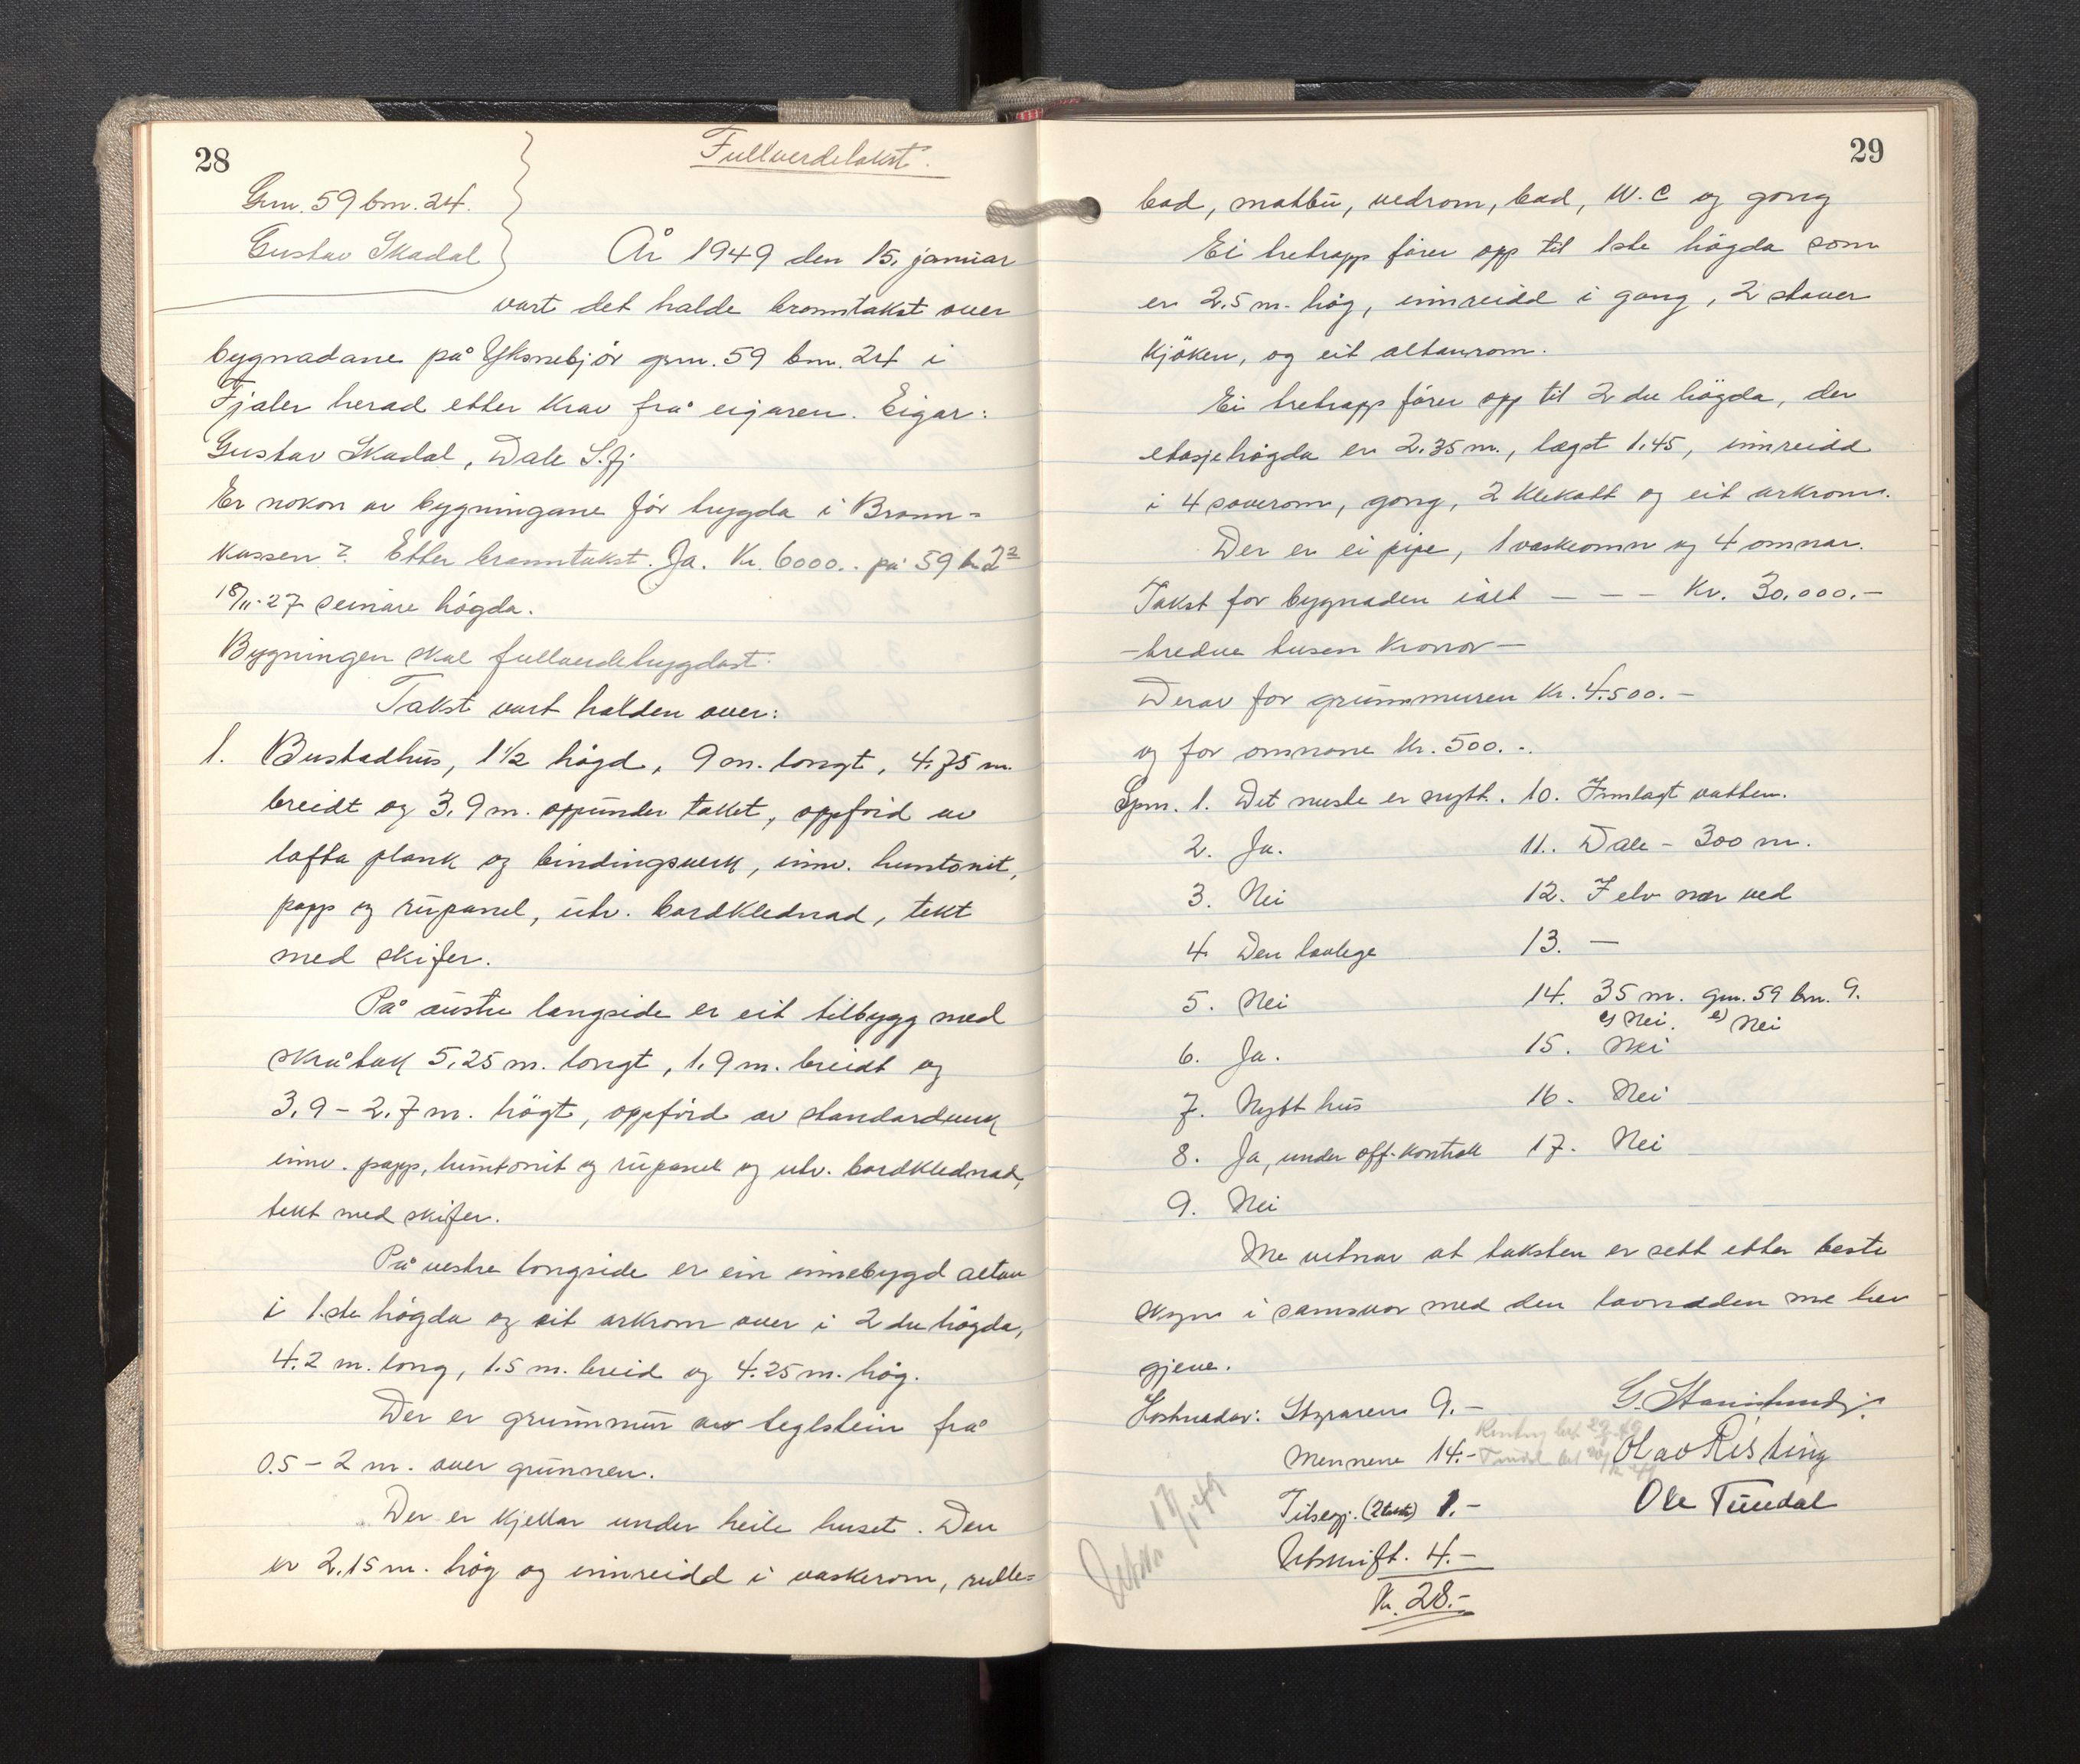 28
Fullverdetakst.
Gnr. 59 bnr. 24.
Gustav Skadal
År 1949 den 15. januar
vart det halde branntakst over
bygnadane på Yksnebjör gnr. 59 bnr. 24 i
Fjaler herad etter krav frå eigaren. Eigar:
Gustav Skadal, Dale S.fj
Er nokon av bygningane för trygda i Brann-
kassen? Etter branntakst. Ja. Kr. 6000.. på 59 b 2²
18/11-27 seinare högda.
Bygningen skal fullverdetrygdast.
Takst vart halden over:
1. Bustadhus, 1½ högd, 9 m. langt, 4.75 m.
breidt og 3.9 m. oppunder taket, oppförd av
lafta plank og bindingsverk, innv. huntonit,
papp og rupanel, utv. bordklednad, tekt
med skifer.
På austre langside er eit tilbygg med
skråtak 5.25 m. langt, 1.9 m. breidt og
3.9 - 2.7 m. högt, oppförd av standardverk
innv. papp, huntonit og rupanel og utv. bordklednad,
tekt med skifer.
På vestre langside er ein innebygd altan
i 1.ste högda og eit arkrom over i 2 du högda,
4.2 m. lang, 1.5 m. breid og 4.25 m. hög.
Der er grunnmur av teglstein frå
0.5 - 2 m. over grunnen.
Der er kjellar under heile huset. Den
er 2.15 m. hög og innreidd i vaskerom, rulle-
29
bod, matbu, vedrom, bad, W.C og gong
Ei tretrapp förer opp til 1ste högda som
er 2.5 m. hög, innreidd i gang, 2 stover
kjöken, og eit altanrom.
Ei tretrapp förer opp til 2 du högda, der
etasjehögda er 2.35 m., lægst 1.45, innreidd
i 4 soverom, gong, 2 klekott og eit arkrom.
Der er ei pipe, 1 vaskeomn og 4 omnar.
Takst for bygnaden ialt - - - Kr. 30.000.-
- tredve tusen kronor -
Derav for grunnmuren Kr. 4.500.-
og for omnane Kr. 500.-.
Spm. 1. Det meste er nytt. 10. Innlagt vatten.
2. Ja. 11. Dale - 300 m.
3. Nei 12. I elv nær ved
4. Den lovlege 13. -
5. Nei 14. 35 m. gnr. 59 bnr. 9.
c) Nei. e) Nei
6. Ja. 15. Nei
7. Nytt hus 16. Nei
8. Ja, under off. kontroll 17. Nei
9. Nei
Me vitnar at taksten er sett etter beste
skyn i samsvar med den lovnaden me hev
gjeve.
Kostnader: Styraren 9.-
Mennene 14.- Olav Risting
Tilsegj. (2 takst) 1.- Ole Tundal
Utskrift. 4.-
Kr. 28.-
17/1-49